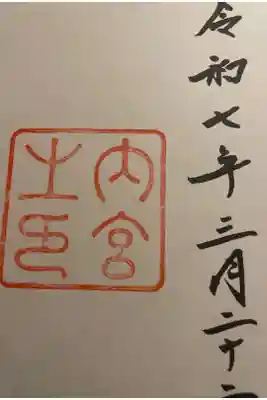 令和七年三月二十
内宮
之印